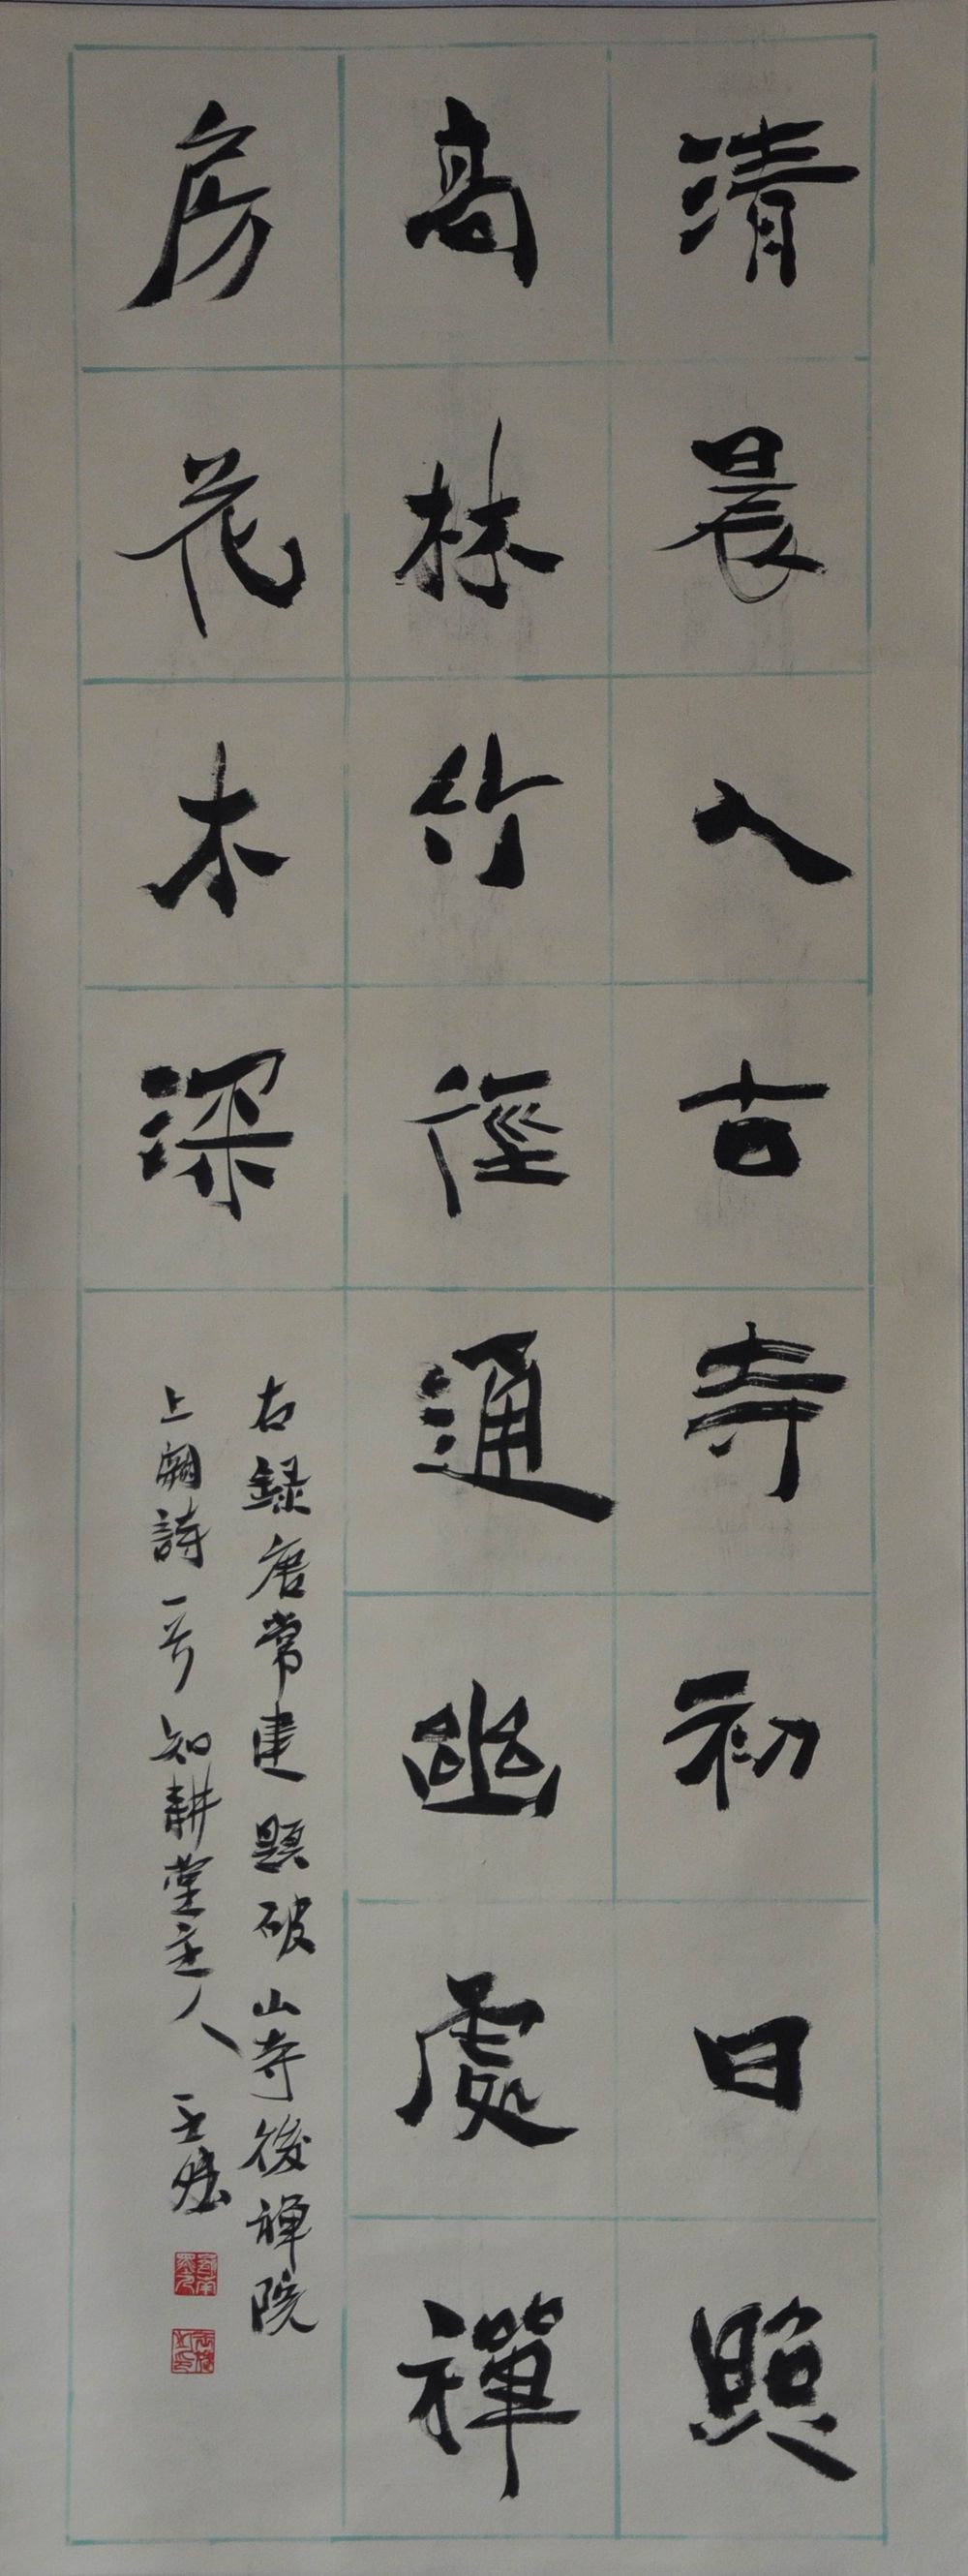 清晨入古寺初日照
高林竹徑通幽處禪
房花木深
右録唐常建題破山寺後禪院
上闕詩一首 知耕堂主人 王